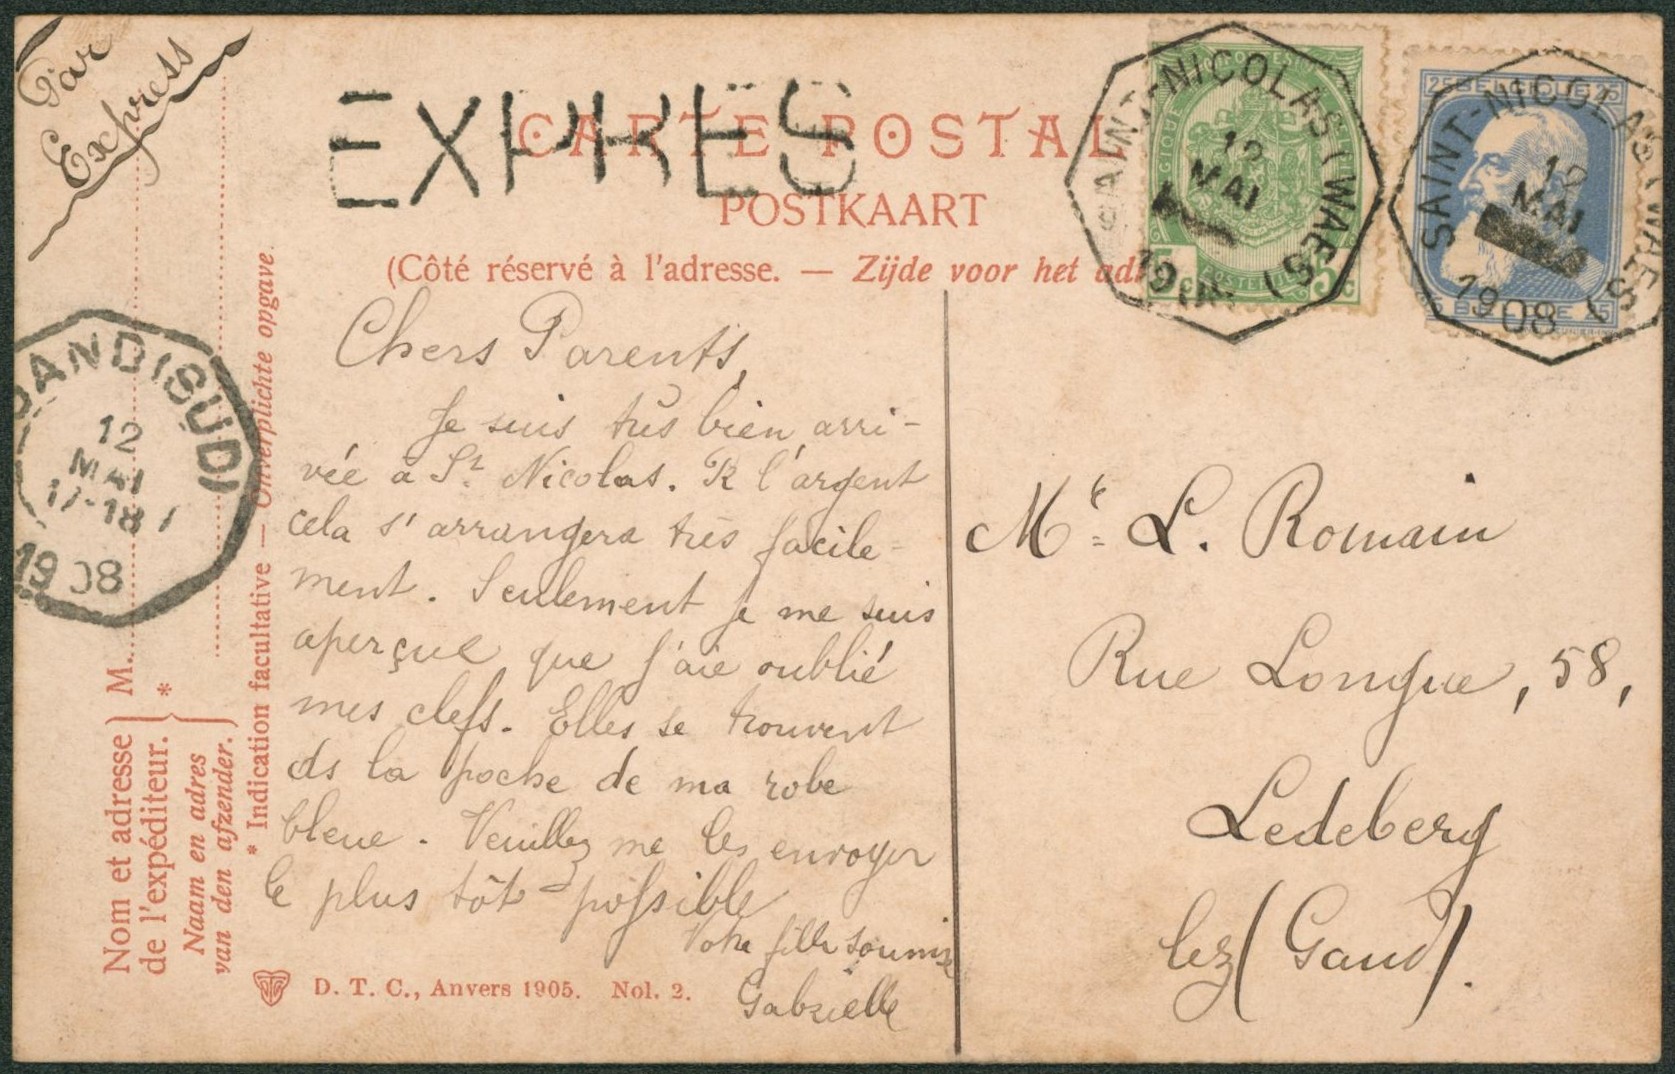 Par
Express
EXPRES
CARTE POSTAL
POSTKAART
(Côté réservé à l'adresse. — Zijde voor het adr
SAINT-NICOLAS (WAES)
12
MAI
19
SAINT-NICOLAS (WAES)
12
MAI
1908
5c
25 BELGIQUE 25
BELGIE 25
GAND (SUD)
12
MAI
17-18
1908
Chers Parents,
Je suis très bien arri-
vée à St Nicolas. R l'argent
cela s'arrangera très facile-
ment. Seulement je me suis
aperçue que j'aie oublié
mes clefs. Elles se trouvent
ds la poche de ma robe
bleue. Veuillez me les envoyer
le plus tôt possible
Votre fille soumise
Gabrielle
Mr L. Romain
Rue Longue, 58,
Ledeberg
lez (Gand).
Nom et adresse
de l'expéditeur.
Naam en adres
van den afzender.
M.
*
* Indication facultative — Onverplichte opgave
D. T. C., Anvers 1905. Nol. 2.